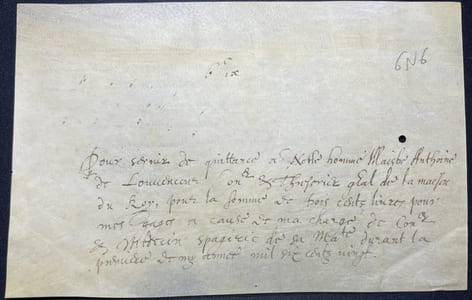 6N6
vjᶜ ix
Pour servir de quittance a Noble homme Maistre Anthoine
de Louvencour Conᵉʳ & Thresorier gñal de la maison
du Roy, pour la somme de trois cents livres pour
mes gages a cause de ma charge de Conᵉʳ
& Medecin spagiric de sa Maᵗᵉ durant la
premiere demy année mil six cents vingt.